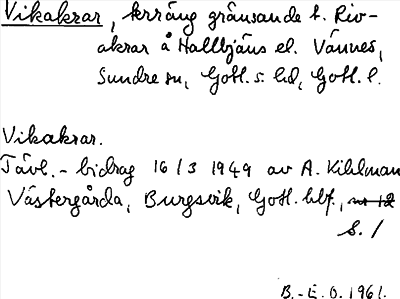 Vikakrar, terräng gränsande t. Riv-
akrar å Hallbjäns el. Vännes,
Sundre sn, Gotl. s. hd, Gotl. l.
Vikakrar.
Tävl.-bidrag 16/3 1949 av A. Kihlman
Västergårda, Burgsvik, Gotl. hbf.,
S. 1
B.-E. O. 1961.